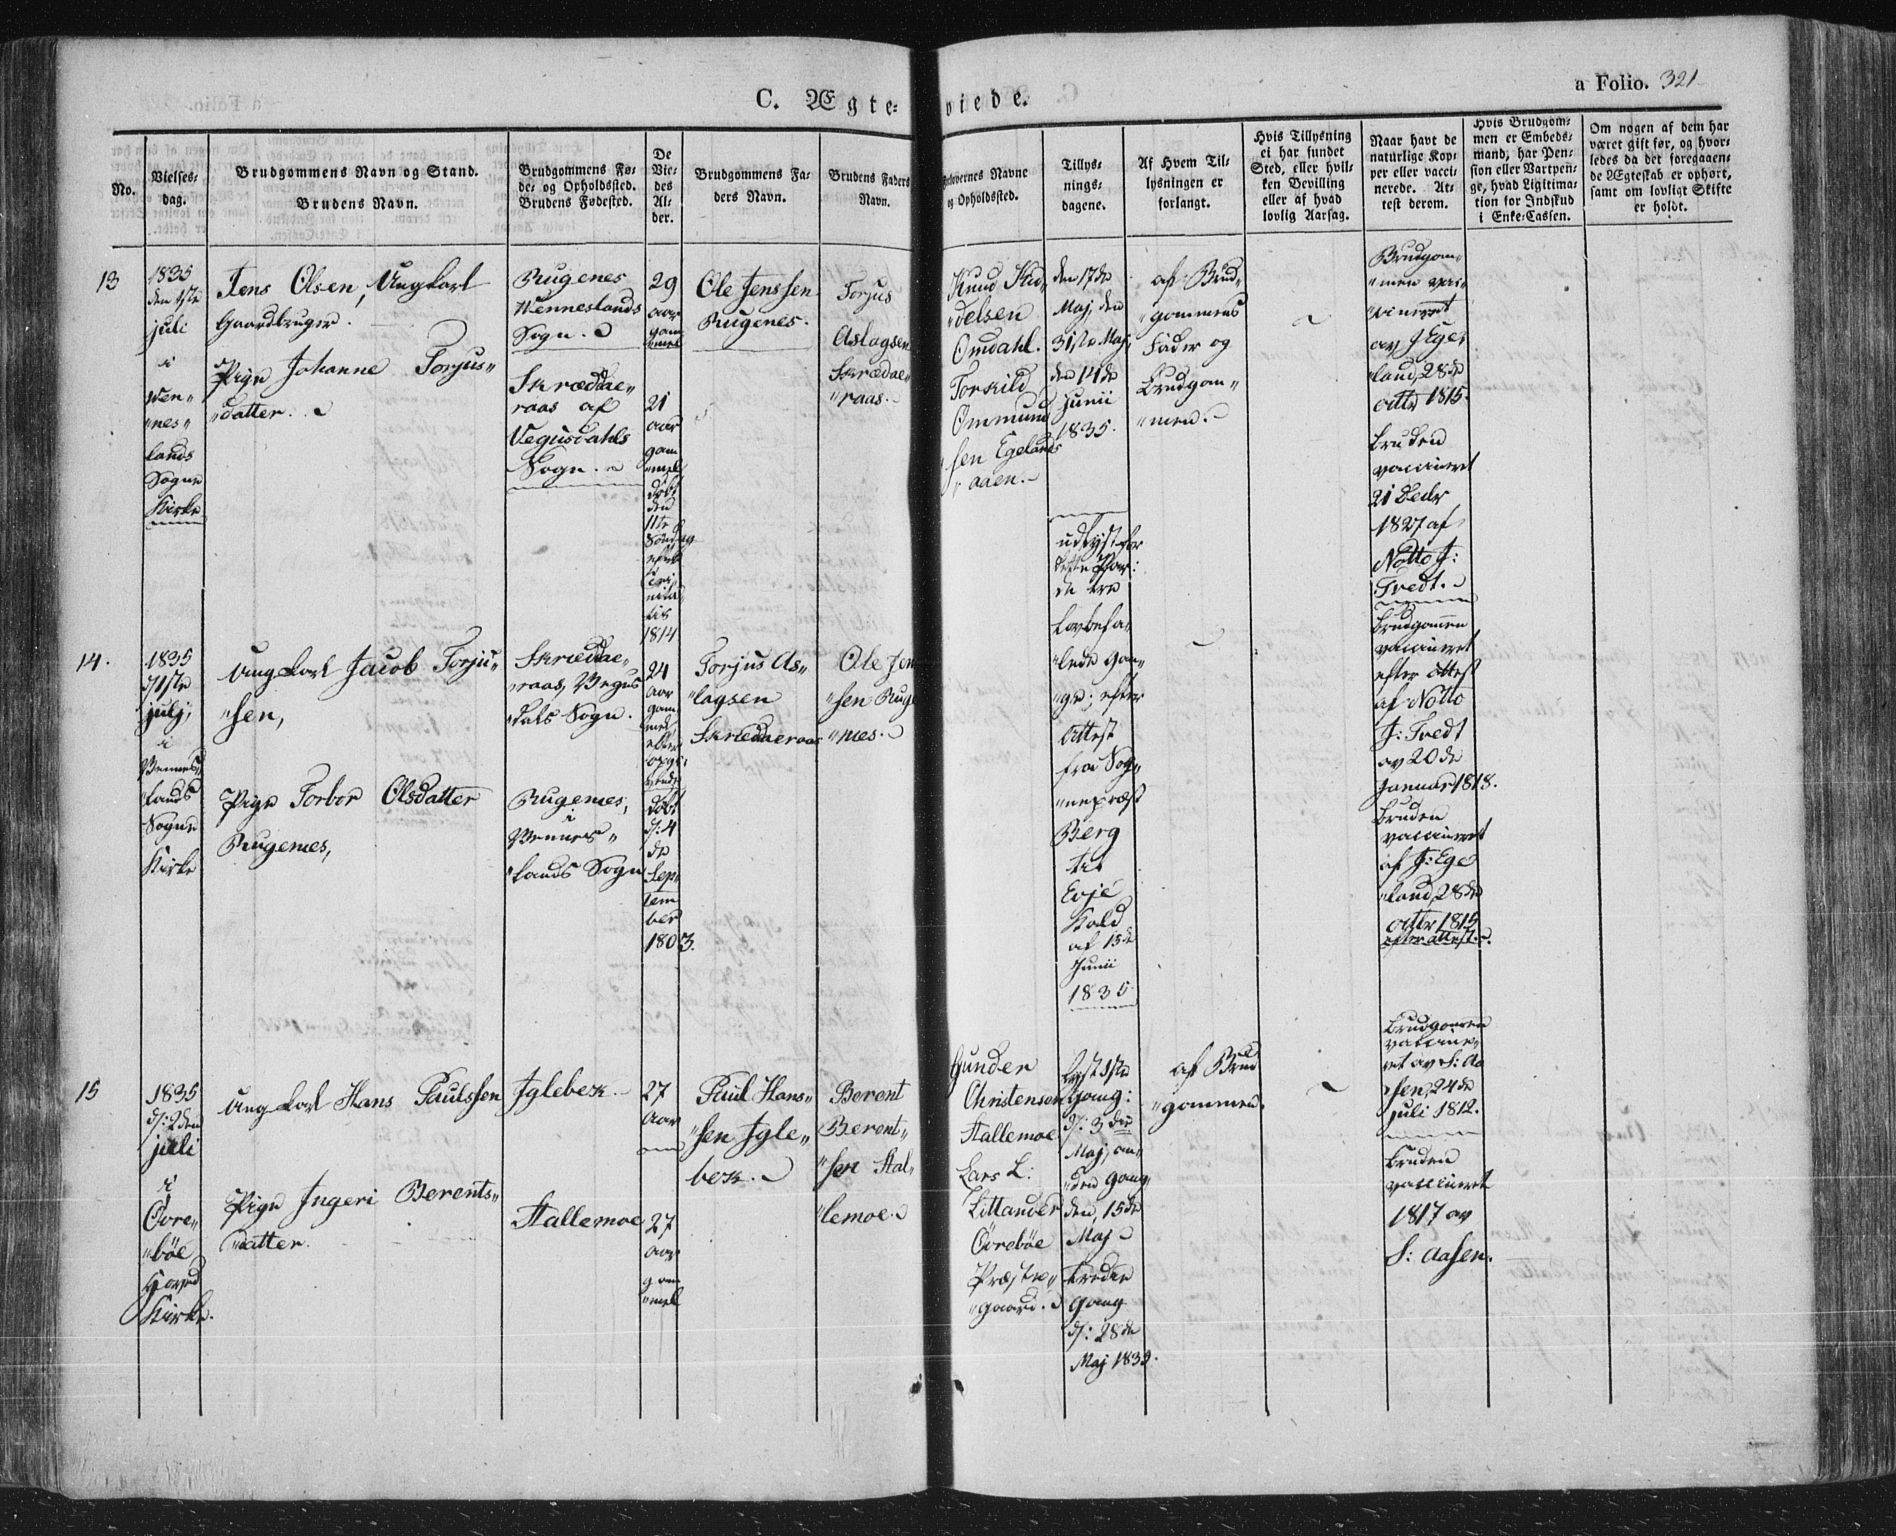 C. Ægte-
viede.
a Folio. 321.
No.
Vielses-
dag.
Brudgommens Navn og Stand.
Brudens Navn.
Brudgommens Fø-
de- og Opholdssted.
Brudens Fødested.
De
Vie-
des
Al-
der.
Brudgommens Fa-
ders Navn.
Brudens Faders
Navn.
Forlovernes Navne
og Opholdssted.
Tillys-
nings-
dagene.
Af Hvem Til-
lysningen er
forlangt.
Hvis Tillysning
ei har fundet
Sted, eller hvil-
ken Bevilling
eller af hvad
lovlig Aarsag.
Naar havt de
naturlige Kop-
per eller vacci-
nerede. At-
test derom.
Hvis Brudgom-
men er Embeds-
mand, har Pen-
sion eller Vartpen-
ge, hvad Ligitima-
tion for Indskud
i Enke-Cassen.
Om nogen af dem har
været gift før, og hvor-
ledes da det foregaaen-
de Ægteskab er ophørt,
samt om lovligt Skifte
er holdt.
13
1835
den 1ste
juli
i
Ven-
"nes"
lands
Sogne
Kirke
Jens Olsen, Ungkarl
Gaardbruger.
Pige Johanne Torjus"
"datter.
Rugenes
Wenneslands
Sogn.
Skrædde-
raas af
Vegusdahls
Sogn.
29
aar
gam
"mel
21
aar
gam
"mel
døbt
den
11te
Søndag
efter
Trini
nita-
tis
1814
Ole Jenssen
Rugenes.
Torjus
Aslagsen
Skrædae"
"raas.
Knud Kid-
"delsen
Omdahl.
Torkild
Ommund
sen Egelands
aaen.
den 17de
Maj, den
31ste Maj,
den 14de
Junii
1835.
af Brud"
"gommens
Fader og
Brudgom"
"men.
Brudgom"
"men vac"
"cineret
av J Ege"
"land, 28de
octbr 1815.
bruden
vaccineret
21 Decbr
1827 af
Notto J:
Tvedt.
14.
1835
d/1ste
julj,
i
Vennes"
lands
Sogne
Kirke
Ungkarl Jacob Torju"
"sen,
Pige Torbor Olsdatter
Rugenes,
Skrædde-
raas, Vegus
dals Sogn.
Rugenes,
i
Vennes"
"lands Sogn
24
aar
gam
mel
efter
opgi
vende
døbt
d/: 4
de
Sep
tem
ber
1803.
Torjus As-
lagsen
Skræddaeraas
Ole Jen
"sen Ruge
"nes.
udlyst for
dette Par:
de tre
Lovbefa-
"lede Gan-
"ge; efter
Attest
fra Sog"
"nepræst
Berg
til
Evje
Kald
af 15de
Junii
1835
Brudgommen
vaccineret
efter attest
af Notto
J: Tvedt
av 20de
Januar 1818.
bruden
vaccineret
af J: Ege
"land, 28de
octbr 1815
efter attest.
15
1835
d/: 2den
juli
i
Øvre"
"bøe
Hoved
Kirke.
Ungkarl Hans Paulssen
Pige Ingeri Berents"
"datter.
Iglebek.
Stallemoe
27
aar
27
aar
gam
"mel
Paul Hans"
"sen Igle"
bek.
Berent
Berent"
"sen Stal"
"lemoe.
Gunder
Christensen
Stallemoe
Lars L:
Littander
Øvrebøe
Præste"
"gaard.
Lyst 1ste
Gang:
d/: 3die
Maj, an"
"den Gang
den, 15de
Maj
tredie
Gang
d/: 28de
Maj 1835.
af Brud
"gommen.
brudgommen
vaccine"
ret av S: Aa
"sen, 24de
juli 1812.
bruden
vaccineret
1817 av
S: Aasen.